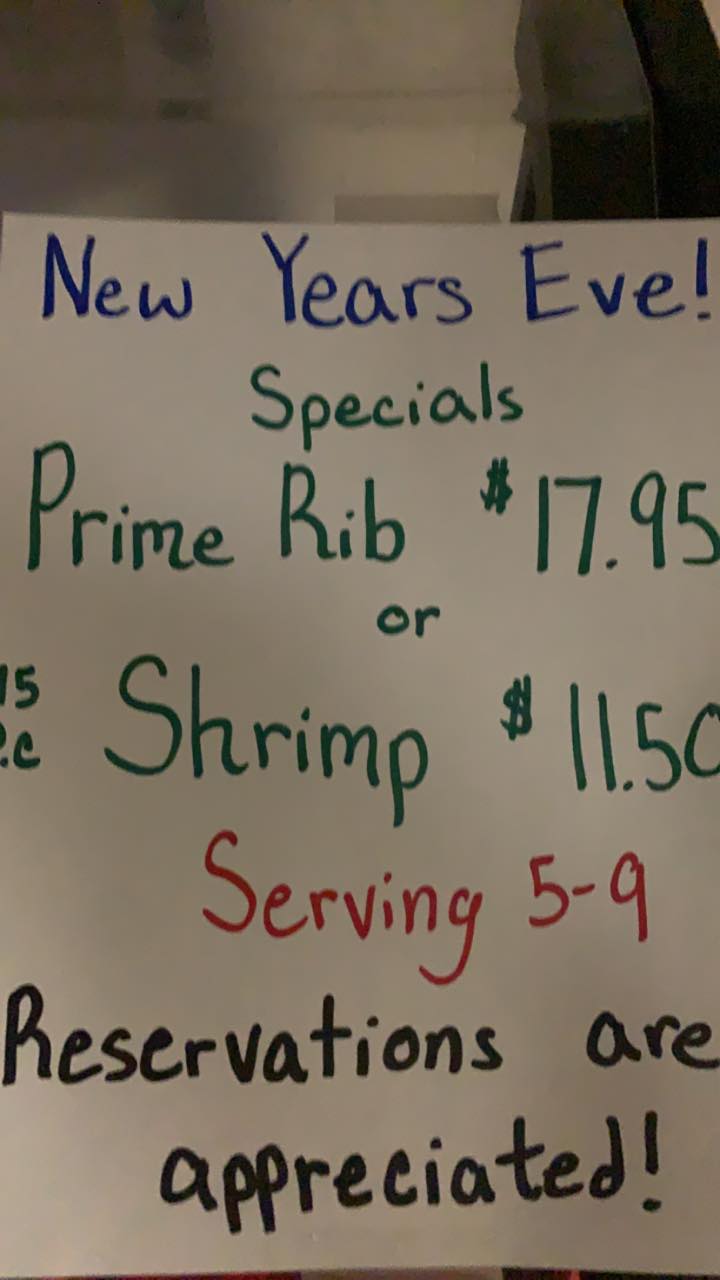 New Years Eve!
Specials
Prime Rib $17.95
or
15 P.c Shrimp $11.50
Serving 5-9
Reservations are
appreciated!